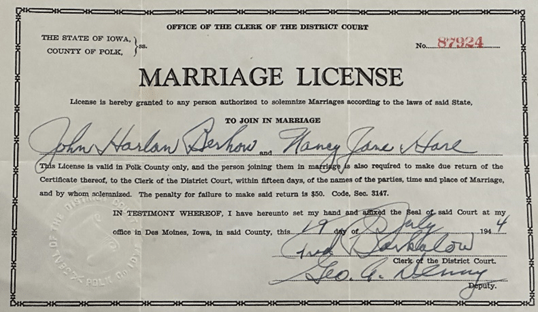 OFFICE OF THE CLERK OF THE DISTRICT COURT
THE STATE OF IOWA,
COUNTY OF POLK, } ss.
No. 87924
MARRIAGE LICENSE
License is hereby granted to any person authorized to solemnize Marriages according to the laws of said State,
TO JOIN IN MARRIAGE
John Harlan Berhow and Nancy Jane Hare
This License is valid in Polk County only, and the person joining them in marriage is also required to make due return of the
Certificate thereof, to the Clerk of the District Court, within fifteen days, of the names of the parties, time and place of Marriage,
and by whom solemnized. The penalty for failure to make said return is $50. Code, Sec. 3147.
IN TESTIMONY WHEREOF, I have hereunto set my hand and affixed the Seal of said Court at my
office in Des Moines, Iowa, in said County, this 19 day of July 1944
Fred Barkalow
Clerk of the District Court.
Geo. A. Denny
Deputy.